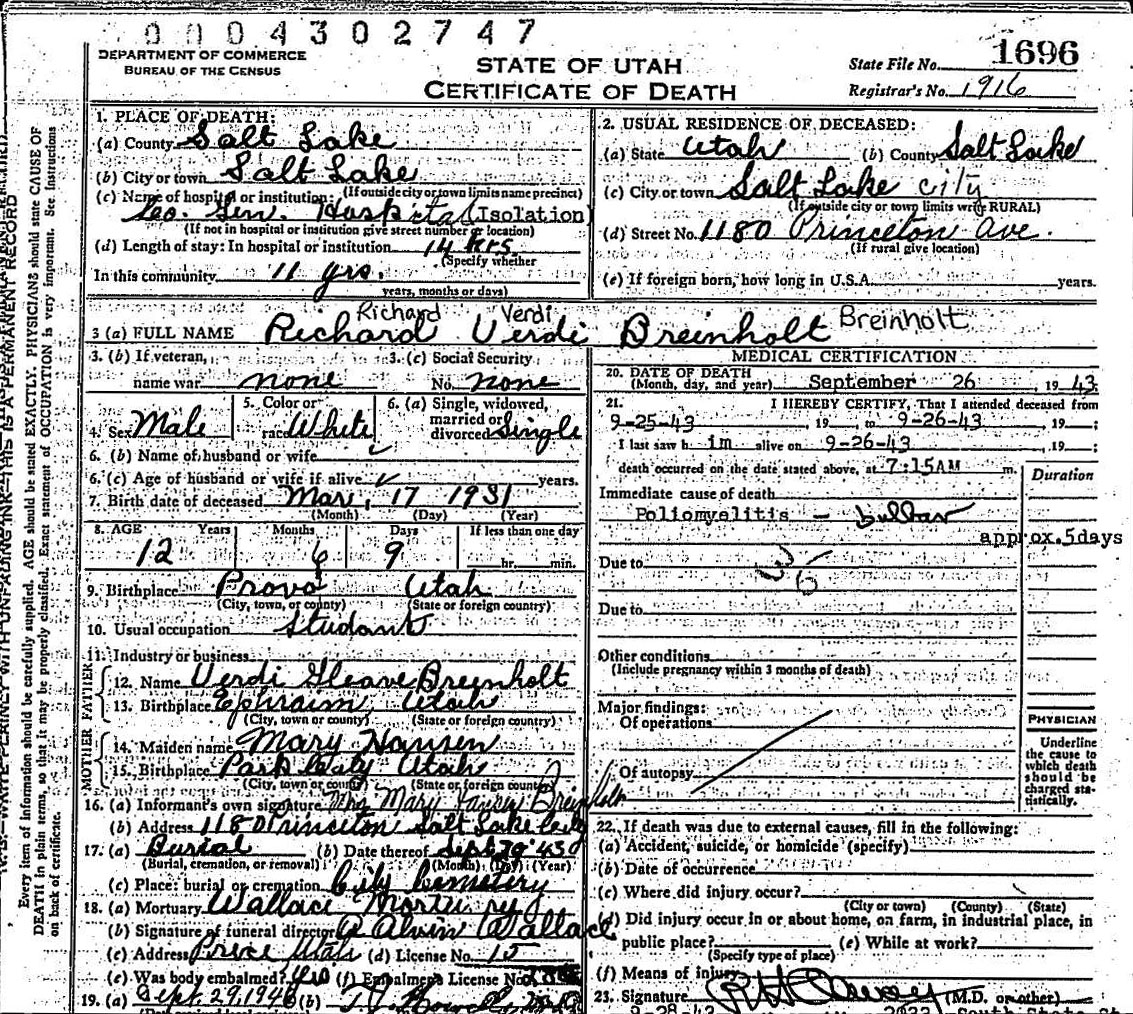 0 0 0 4 3 0 2 7 4 7
DEPARTMENT OF COMMERCE
BUREAU OF THE CENSUS
STATE OF UTAH
CERTIFICATE OF DEATH
State File No. 1696
Registrar's No. 1916
1. PLACE OF DEATH:
(a) County Salt Lake
(b) City or town Salt Lake
(If outside city or town limits name precinct)
(c) Name of hospital or institution:
Geo. Gen. Hospital (Isolation)
(If not in hospital or institution give street number or location)
(d) Length of stay: In hospital or institution 14 hrs
(Specify whether
In this community 11 yrs.
years, months or days)
2. USUAL RESIDENCE OF DECEASED:
(a) State Utah (b) County Salt Lake
(c) City or town Salt Lake City
(If outside city or town limits write RURAL)
(d) Street No. 1180 Princeton Ave.
(If rural give location)
(e) If foreign born, how long in U.S.A. years.
Richard Verdi Breinholt
3 (a) FULL NAME Richard Verdi Breinholt
3. (b) If veteran, 3. (c) Social Security
name war none No. none
4. Sex Male 5. Color or race White 6. (a) Single, widowed, married or divorced Single
6. (b) Name of husband or wife
6. (c) Age of husband or wife if alive years.
7. Birth date of deceased Mar. 17 1931
(Month) (Day) (Year)
8. AGE Years Months Days If less than one day
12 6 9 hr. min.
9. Birthplace Provo Utah
(City, town, or county) (State or foreign country)
10. Usual occupation Student
11. Industry or business
FATHER
12. Name Verdi Gleave Breinholt
13. Birthplace Ephraim Utah
(City, town or county) (State or foreign country)
MOTHER
14. Maiden name Mary Hansen
15. Birthplace Park City Utah
(City, town or county) (State or foreign country)
16. (a) Informant's own signature Mrs Mary Hansen Breinholt
(b) Address 1180 Princeton Salt Lake City
17. (a) Burial (b) Date thereof Sept 29 '43
(Burial, cremation, or removal) (Month) (Day) (Year)
(c) Place: burial or cremation City Cemetery
18. (a) Mortuary Wallace Mortuary
(b) Signature of funeral director A Alvin Wallace
(c) Address Price Utah (d) License No. 15
(e) Was body embalmed? Yes (f) Embalmer's License No.
19. (a) Sept. 29, 1943 (b)
MEDICAL CERTIFICATION
20. DATE OF DEATH
(Month, day, and year) September 26, 1943
21. I HEREBY CERTIFY, That I attended deceased from
9-25-43, 19 to 9-26-43, 19 ;
I last saw h im alive on 9-26-43, 19 ;
death occurred on the date stated above, at 7:15AM m.
Duration
Immediate cause of death
Poliomyelitis — bulbar
approx. 5days
Due to
36
Due to
Other conditions
(Include pregnancy within 3 months of death)
Major findings:
Of operations
Of autopsy
PHYSICIAN
Underline
the cause to
which death
should be
charged sta-
tistically.
22. If death was due to external causes, fill in the following:
(a) Accident, suicide, or homicide (specify)
(b) Date of occurrence
(c) Where did injury occur?
(City or town) (County) (State)
(d) Did injury occur in or about home, on farm, in industrial place, in
public place? (e) While at work?
(Specify type of place)
(f) Means of injury
23. Signature (M.D. or other)
9-28-43 2033 South State St
Every item of information should be carefully supplied. AGE should be stated EXACTLY. PHYSICIANS should state CAUSE OF
DEATH in plain terms, so that it may be properly classified. Exact statement of OCCUPATION is very important. See Instructions
on back of certificate.
WRITE PLAINLY WITH UNFADING INK—THIS IS A PERMANENT RECORD